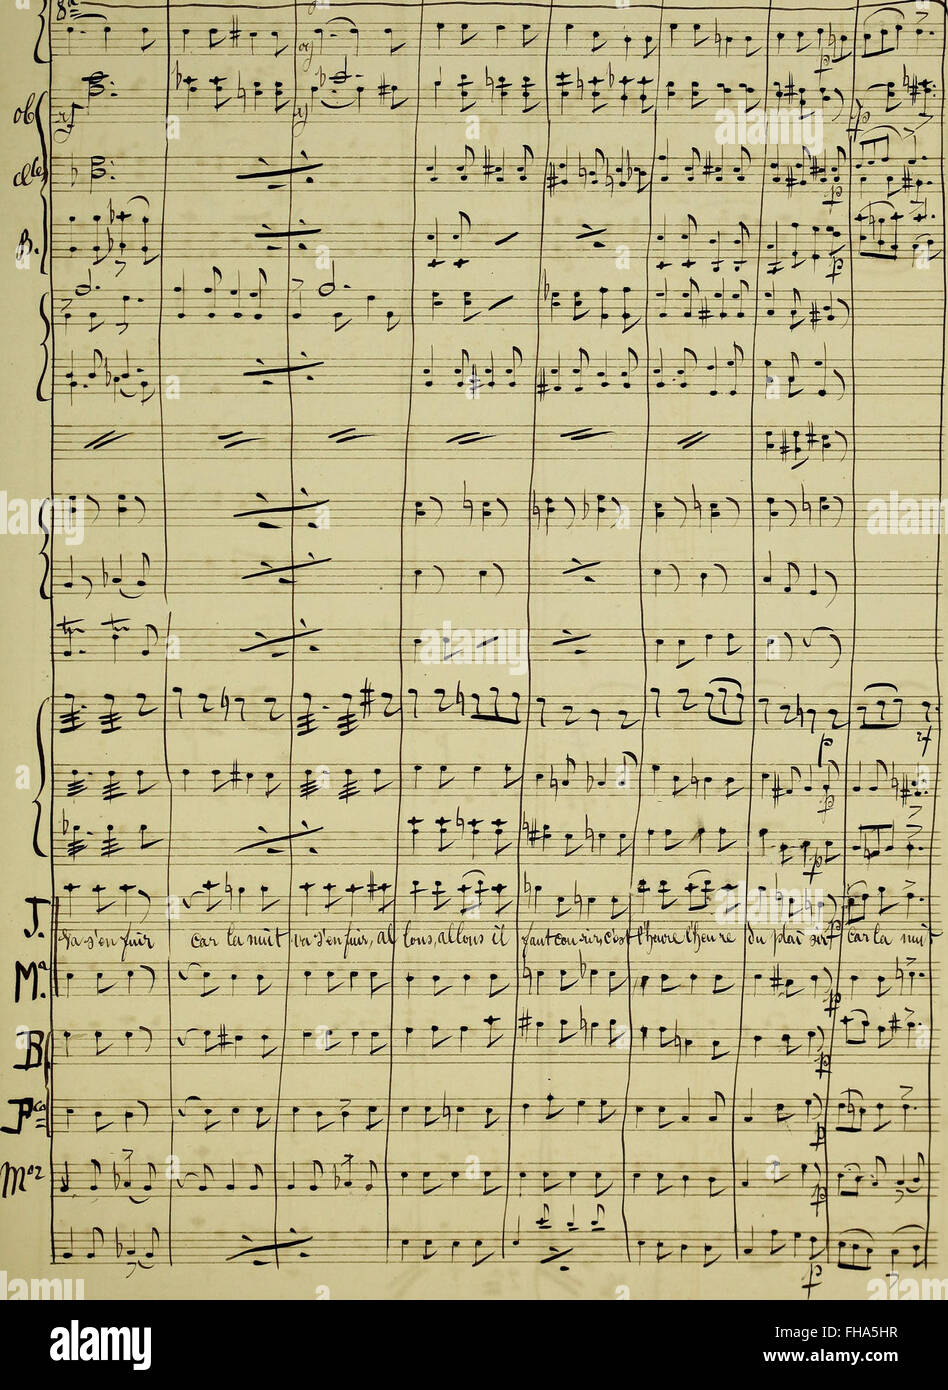 8a
ob
rf
cles
B.
J.
va s'en fuir car la nuit va s'en fuir, al lons, allons il faut cou rir, c'est l'heure l'heure du plai sir car la nuit
Ma
B
Fco
Moz
alamy
Image ID: FHA5HR
www.alamy.com